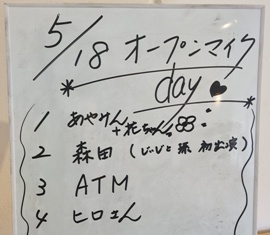 5/18 オープンマイク
day
1 あやけん
+花ちゃん
2 森田 (じぃじと孫 初出演)
3 ATM
4 ヒロさん